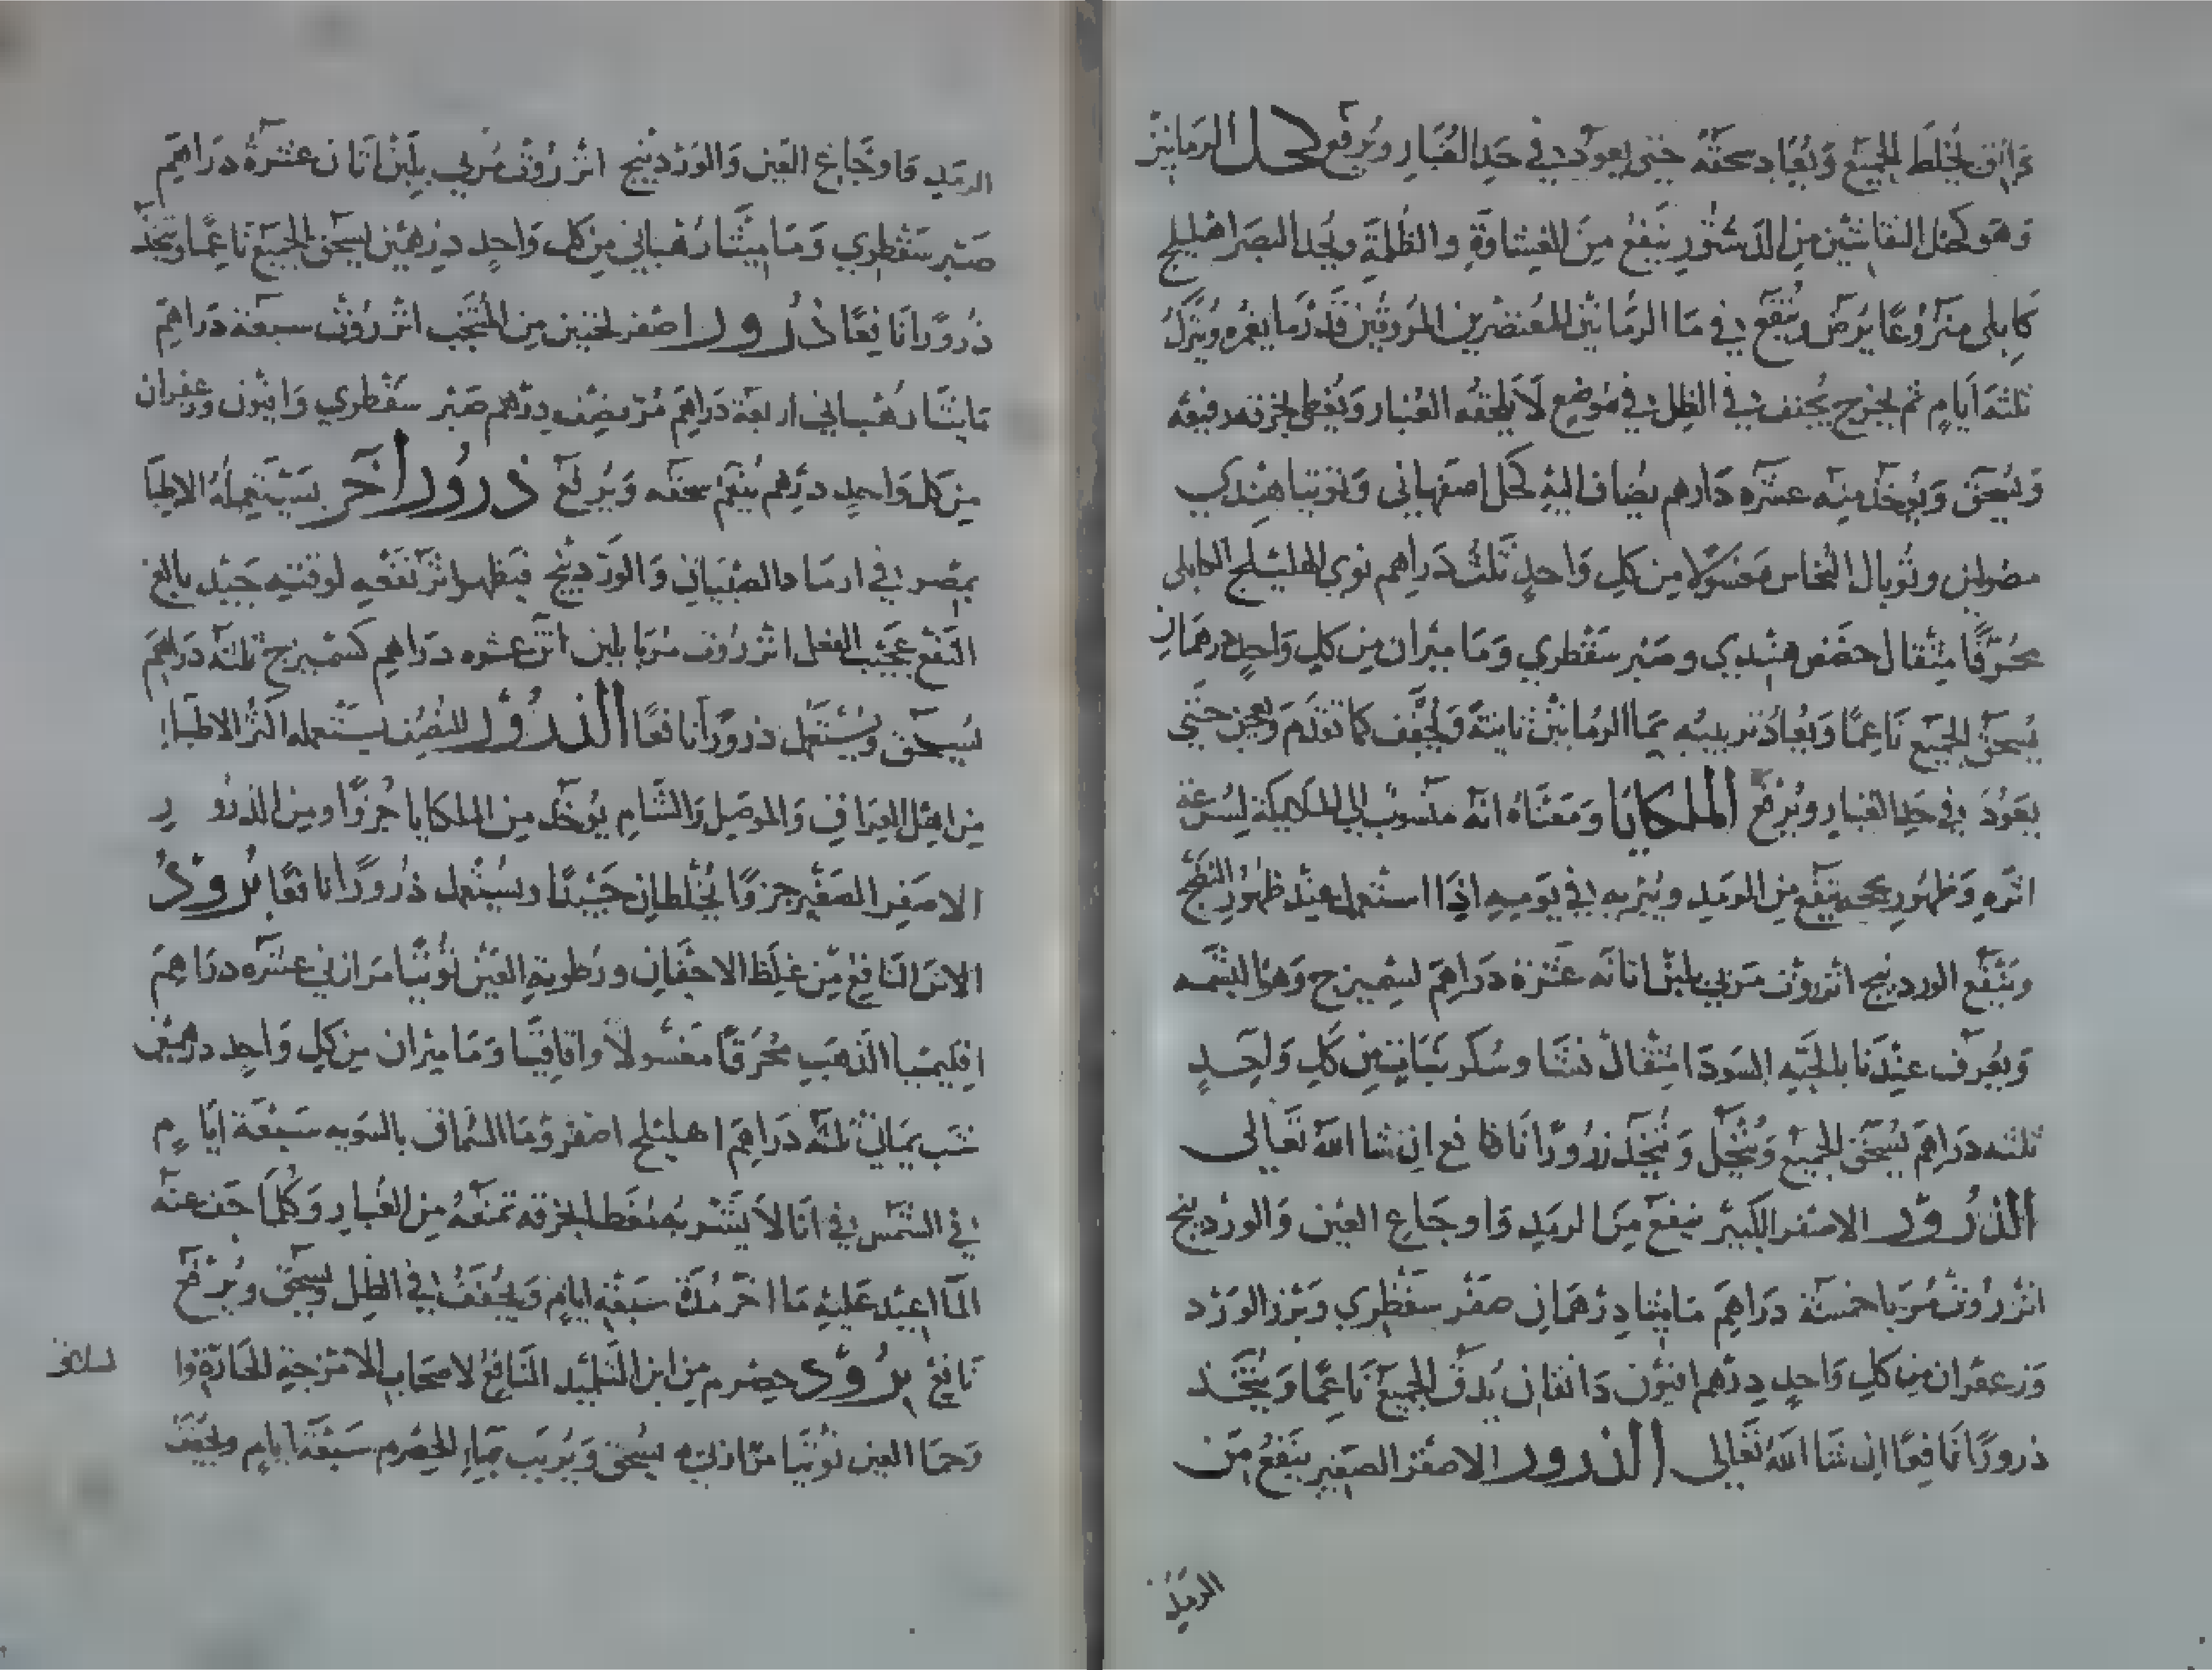 يخلط الجميع ويعاد سحقه حتى يعود في حد الغبار ويرفع كحل الرمانين
وهو كحل النقاشين من الدستور ينفع من الغشاوة والظلمة ويحد البصر اهليلج
كابلى منزوعا يرض وينقع في ما الرمانين المعتصرين المروقين قدر ما يغمره ويترك
ثلثة ايام ثم يخرج يجفف في الظل في موضع لا يلحقه الغبار ويغطى بخرقه رفيعه
ويسحق ويوخذ منه عشره دارهم يضاف اليه كحل اصفهاني وتوتيا هندي
وتوبال النحاس مغسولا من كل واحد ثلث دراهم نوى الهليلج الكابلى
محرقا مثقال حضض هندي وصبر سقطري وماميران من كل واحد درهمان
يسحق الجميع ناعما ويعاد تربيبه بما الرمانين ثانية ويجفف كما تقدم حتي
يعود في حد الغبار ويرفع الملكايا ومعناه انه منسوب الي الملايكة لسرعة
اثره وظهور ينفع من الرمد ويبريه في يوميه اذا استعمل عند ظهور النضج
وينفع الوردينج انزروت مربي بلبن اتانه عشرة دراهم تشميزج وهو البشمه
ويعرف عندنا بالحبه السودا مثقال نشا وسكر نباتين كل واحد
ثلثه دراهم يسحق الجميع وينخل ويتخذ ذرورا نافع ان شا الله تعالى
الذرور الاصفر الكبير ينفع من الرمد واوجاع العين والوردينج
انزروت مربا خمسة دراهم ماميثا درهمان صبر سقطري وبزر الورد
وزعفران من كل واحد درهم افيون دانقان يدق الجميع ناعما ويتخذ
ذرورا نافعا ان شا الله تعالى الذرور الاصفر الصغير ينفع من
الرمد
الرمد واوجاع العين والوردينج انزروت مربي بلبن اتان عشرة دراهم
صبر سقطري وماميثا رهباني من كل واحد درهمين يسحق الجميع ناعما ويتخذ
ذرورا نافعا ذرور اصفر لحنين من المنتخب انزروت سبعة دراهم
ماميثا رهباني اربعة دراهم مر نصف درهم صبر سقطري وافيون وزعفران
من كل واحد درهم ينعم سحقه ويرفع ذرور اخر يستعمله الاطبا
بمصر في ارماد الصبيان والوردينج فيظهر اثر نفعه لوقته جيد بالغ
النفع عجيب الفعل انزروت مربا بلبن اتن عشره دراهم تشميزج ثلثه دراهم
يسحق ويستعمل ذرورا نافعا الذرور المنصف يستعمله اكثر الاطبا
من اهل العراق والموصل والشام يوخذ من الملكايا جزوا ومن الذرور
الاصفر الصغير جزوا يخلطان جيدا ويستعمل ذرورا نافعا برود
النافع من غلظ الاجفان ورطوبة العين توتيا مرازبي عشره دراهم
اقليميا الذهب محرقا مغسولا واقاقيا وماميران من كل واحد درهمين
شب يماني ثلثه دراهم اهليلج اصفر وما السماق بالسويه سبعة ايام
في الشمس في انا لا يتشربه مغطا بخرقه تمنعه من الغبار وكلما جف عنه
الما اعيد عليه ما اخر مدة سبعة ايام ويجفف في الظل ويسحق ويرفع
نافع برود حصرم من ابن التلميذ النافع لاصحاب الامزجة الحارة
وحما العين توتيا مرازبي يسحق ويربب بماء الحصرم سبعة ايام ويجفف